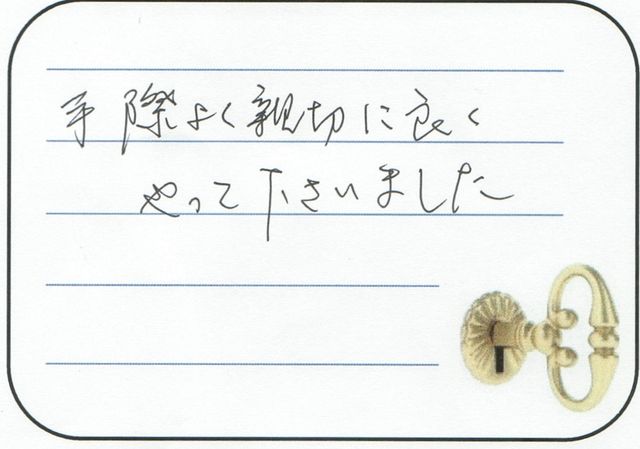 手際よく親切に良く
やって下さいました